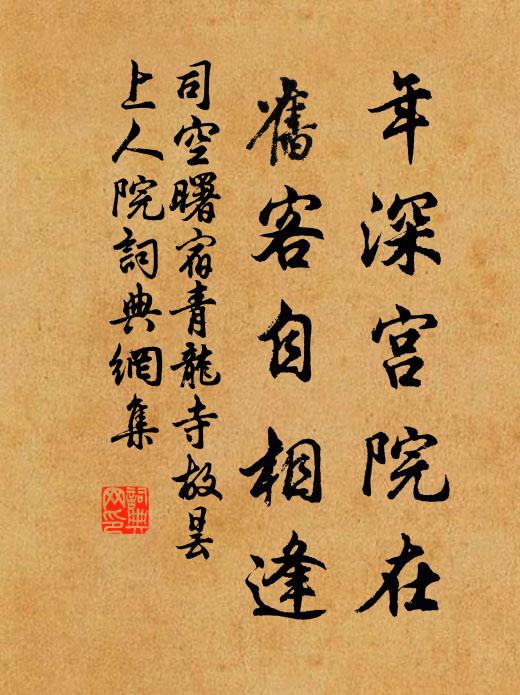 年深宫院在
舊客自相逢
司空曙宿青龍寺故曇
上人院詞典網集
詞典
网印